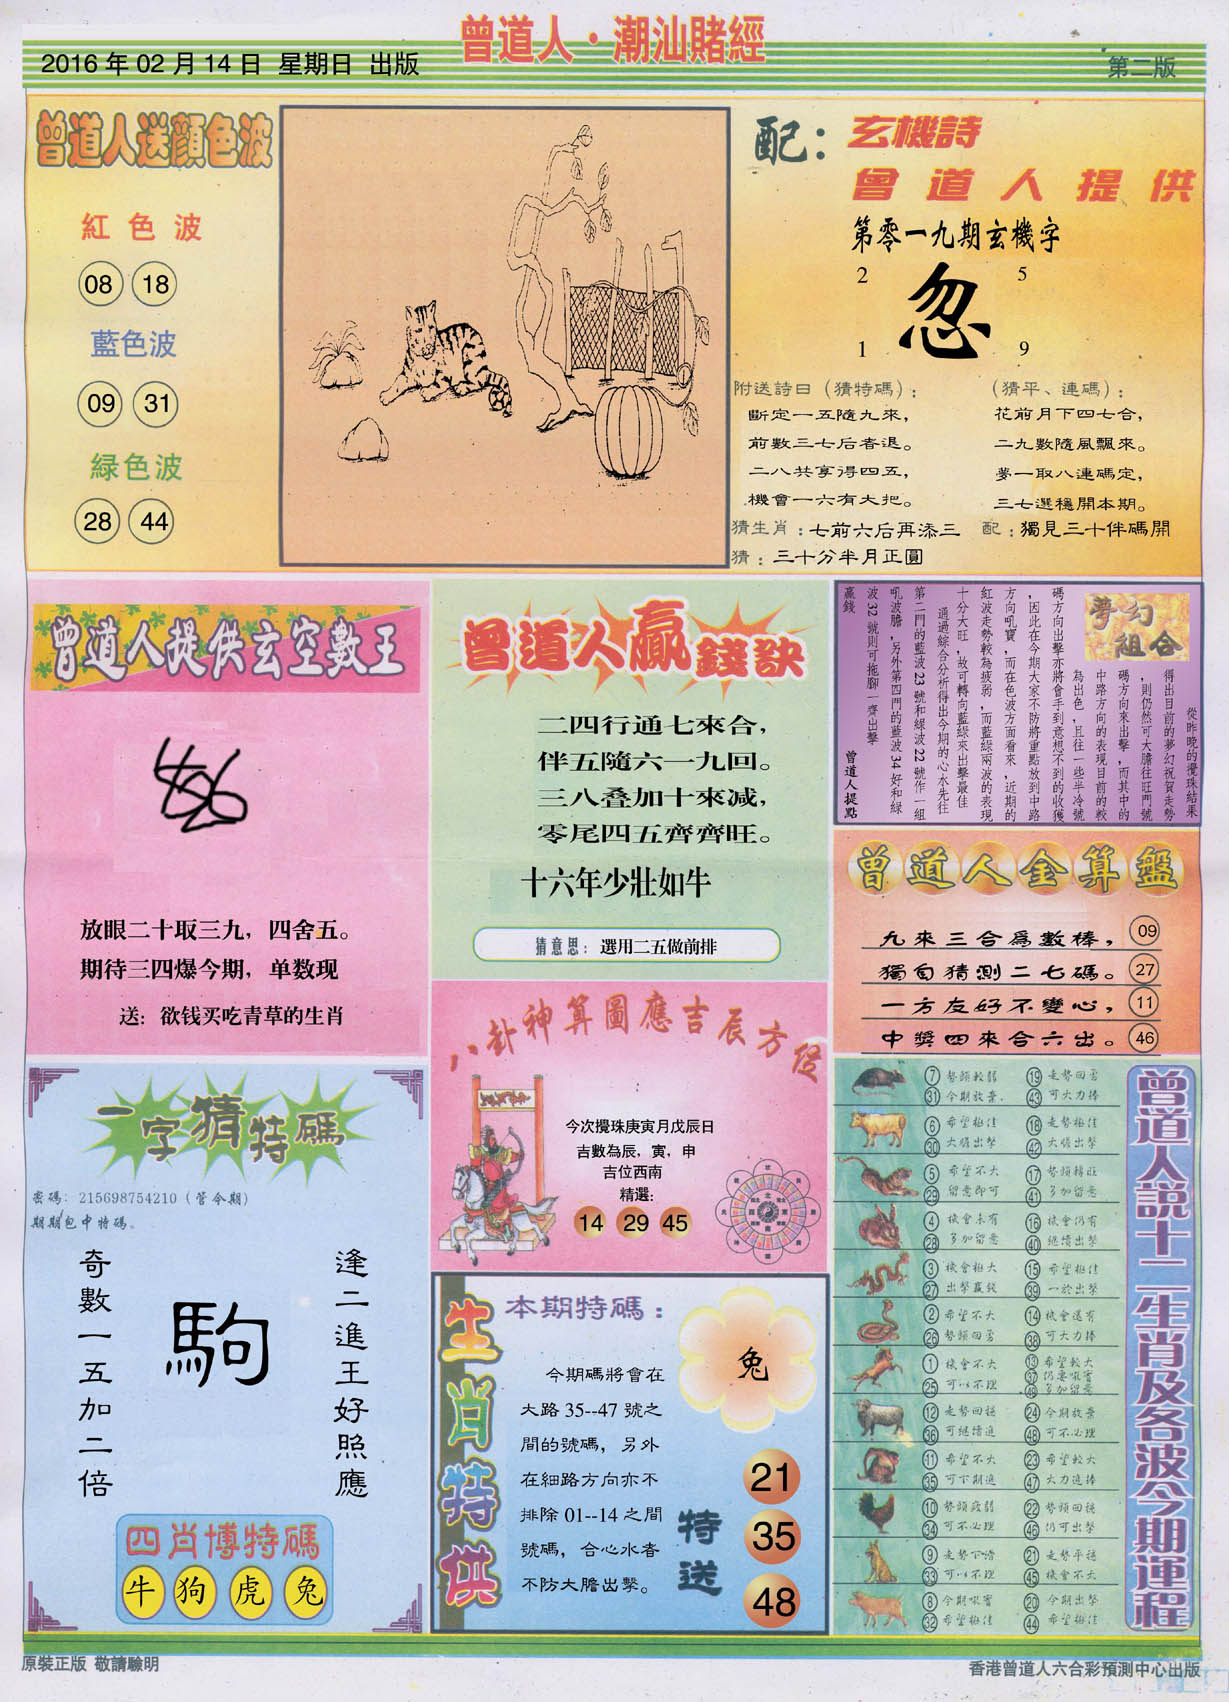 曾道人·潮汕賭經
2016年02月14日 星期日 出版
第二版
曾道人送顏色波
紅色波
08 18
藍色波
09 31
緑色波
28 44
配：玄機詩
曾道人提供
第零一九期玄機字
2 5
忽
1 9
附送詩日（猜特碼）：
斷定一五隨九來，
前數三七后者退。
二八共享得四五，
機會一六有大把。
（猜平、連碼）：
花前月下四七合，
二九數隨風飄來。
夢一取八連碼定，
三七選穩開本期。
猜生肖：七前六后再添三
配：獨見三十伴碼開
猜：三十分半月正圓
曾道人提供玄空數王
放眼二十取三九，四舍五。
期待三四爆今期，单数现
送：欲钱买吃青草的生肖
曾道人贏錢訣
二四行通七來合，
伴五隨六一九回。
三八叠加十來減，
零尾四五齊齊旺。
十六年少壯如牛
猜意思：選用二五做前排
夢幻組合
從昨晚的攪珠結果
得出目前的夢幻祝賀走勢
，則仍然可大膽往旺門號
碼方向來出擊，而其中的
中路方向的表現目前的較
為出色，且往一些半冷號
碼方向出擊亦將會手到意想不到的收獲
，因此在今期大家不防將重點放到中路
方向吼寶，而在色波方面看來，近期的
紅波走勢較為疲弱，而藍綠兩波的表現
十分大旺，故可轉向藍綠來出擊最佳
通過綜合分析得出今期的心水先往
第二門的藍波23號和綠波22號作一組
吼波膽，另外第四門的藍波34好和綠
波32號則可拖腳一齊出擊
贏錢
曾道人提點
曾道人金算盤
九來三合爲數棒， 09
獨自猜測二七碼。 27
一方友好不變心， 11
中獎四來合六出。 46
八卦神算圖應吉辰方位
今次攪珠庚寅月戊辰日
吉數為辰，寅，申
吉位西南
精選：
14 29 45
一字猜特碼
密碼：215698754210（管令期）
期期包中特碼。
奇數一五加二倍
駒
逢二進王好照應
四肖博特碼
牛 狗 虎 兔
生肖特供
本期特碼：
兔
今期碼將會在
大路35--47號之
間的號碼，另外
在細路方向亦不
排除01--14之間
號碼，合心水者
不防大膽出擊。
特送
21
35
48
曾道人説十二生肖及各波今期運程
7 勢頭較弱 19 走勢回勇
31 今期放棄 43 可大力捧
6 希望極佳 18 走勢極佳
30 大膽出擊 42 大膽出擊
5 希望不大 17 勢頭轉旺
29 留意即可 41 多加留意
4 機會未有 16 機會仍有
28 多加留意 40 繼續出擊
3 機會極大 15 希望極佳
27 出擊贏錢 39 一於出擊
2 希望不大 14 機會還有
26 勢頭回勇 38 可大力捧
1 機會不大 13 希望較大
25 可以不理 37 仍要吸實
49 多加留意
12 走勢回穩 24 今期放棄
36 可繼續追 48 可不必理
11 希望不大 23 希望較大
35 可下期追 47 大力追捧
10 勢頭疲弱 22 勢頭回穩
34 可不必理 46 仍可出擊
9 走勢下滑 21 走勢平穩
33 可以不理 45 機會不大
8 今期吸實 20 今期出擊
32 希望極佳 44 希望極佳
原裝正版 敬請驗明
香港曾道人六合彩預測中心出版